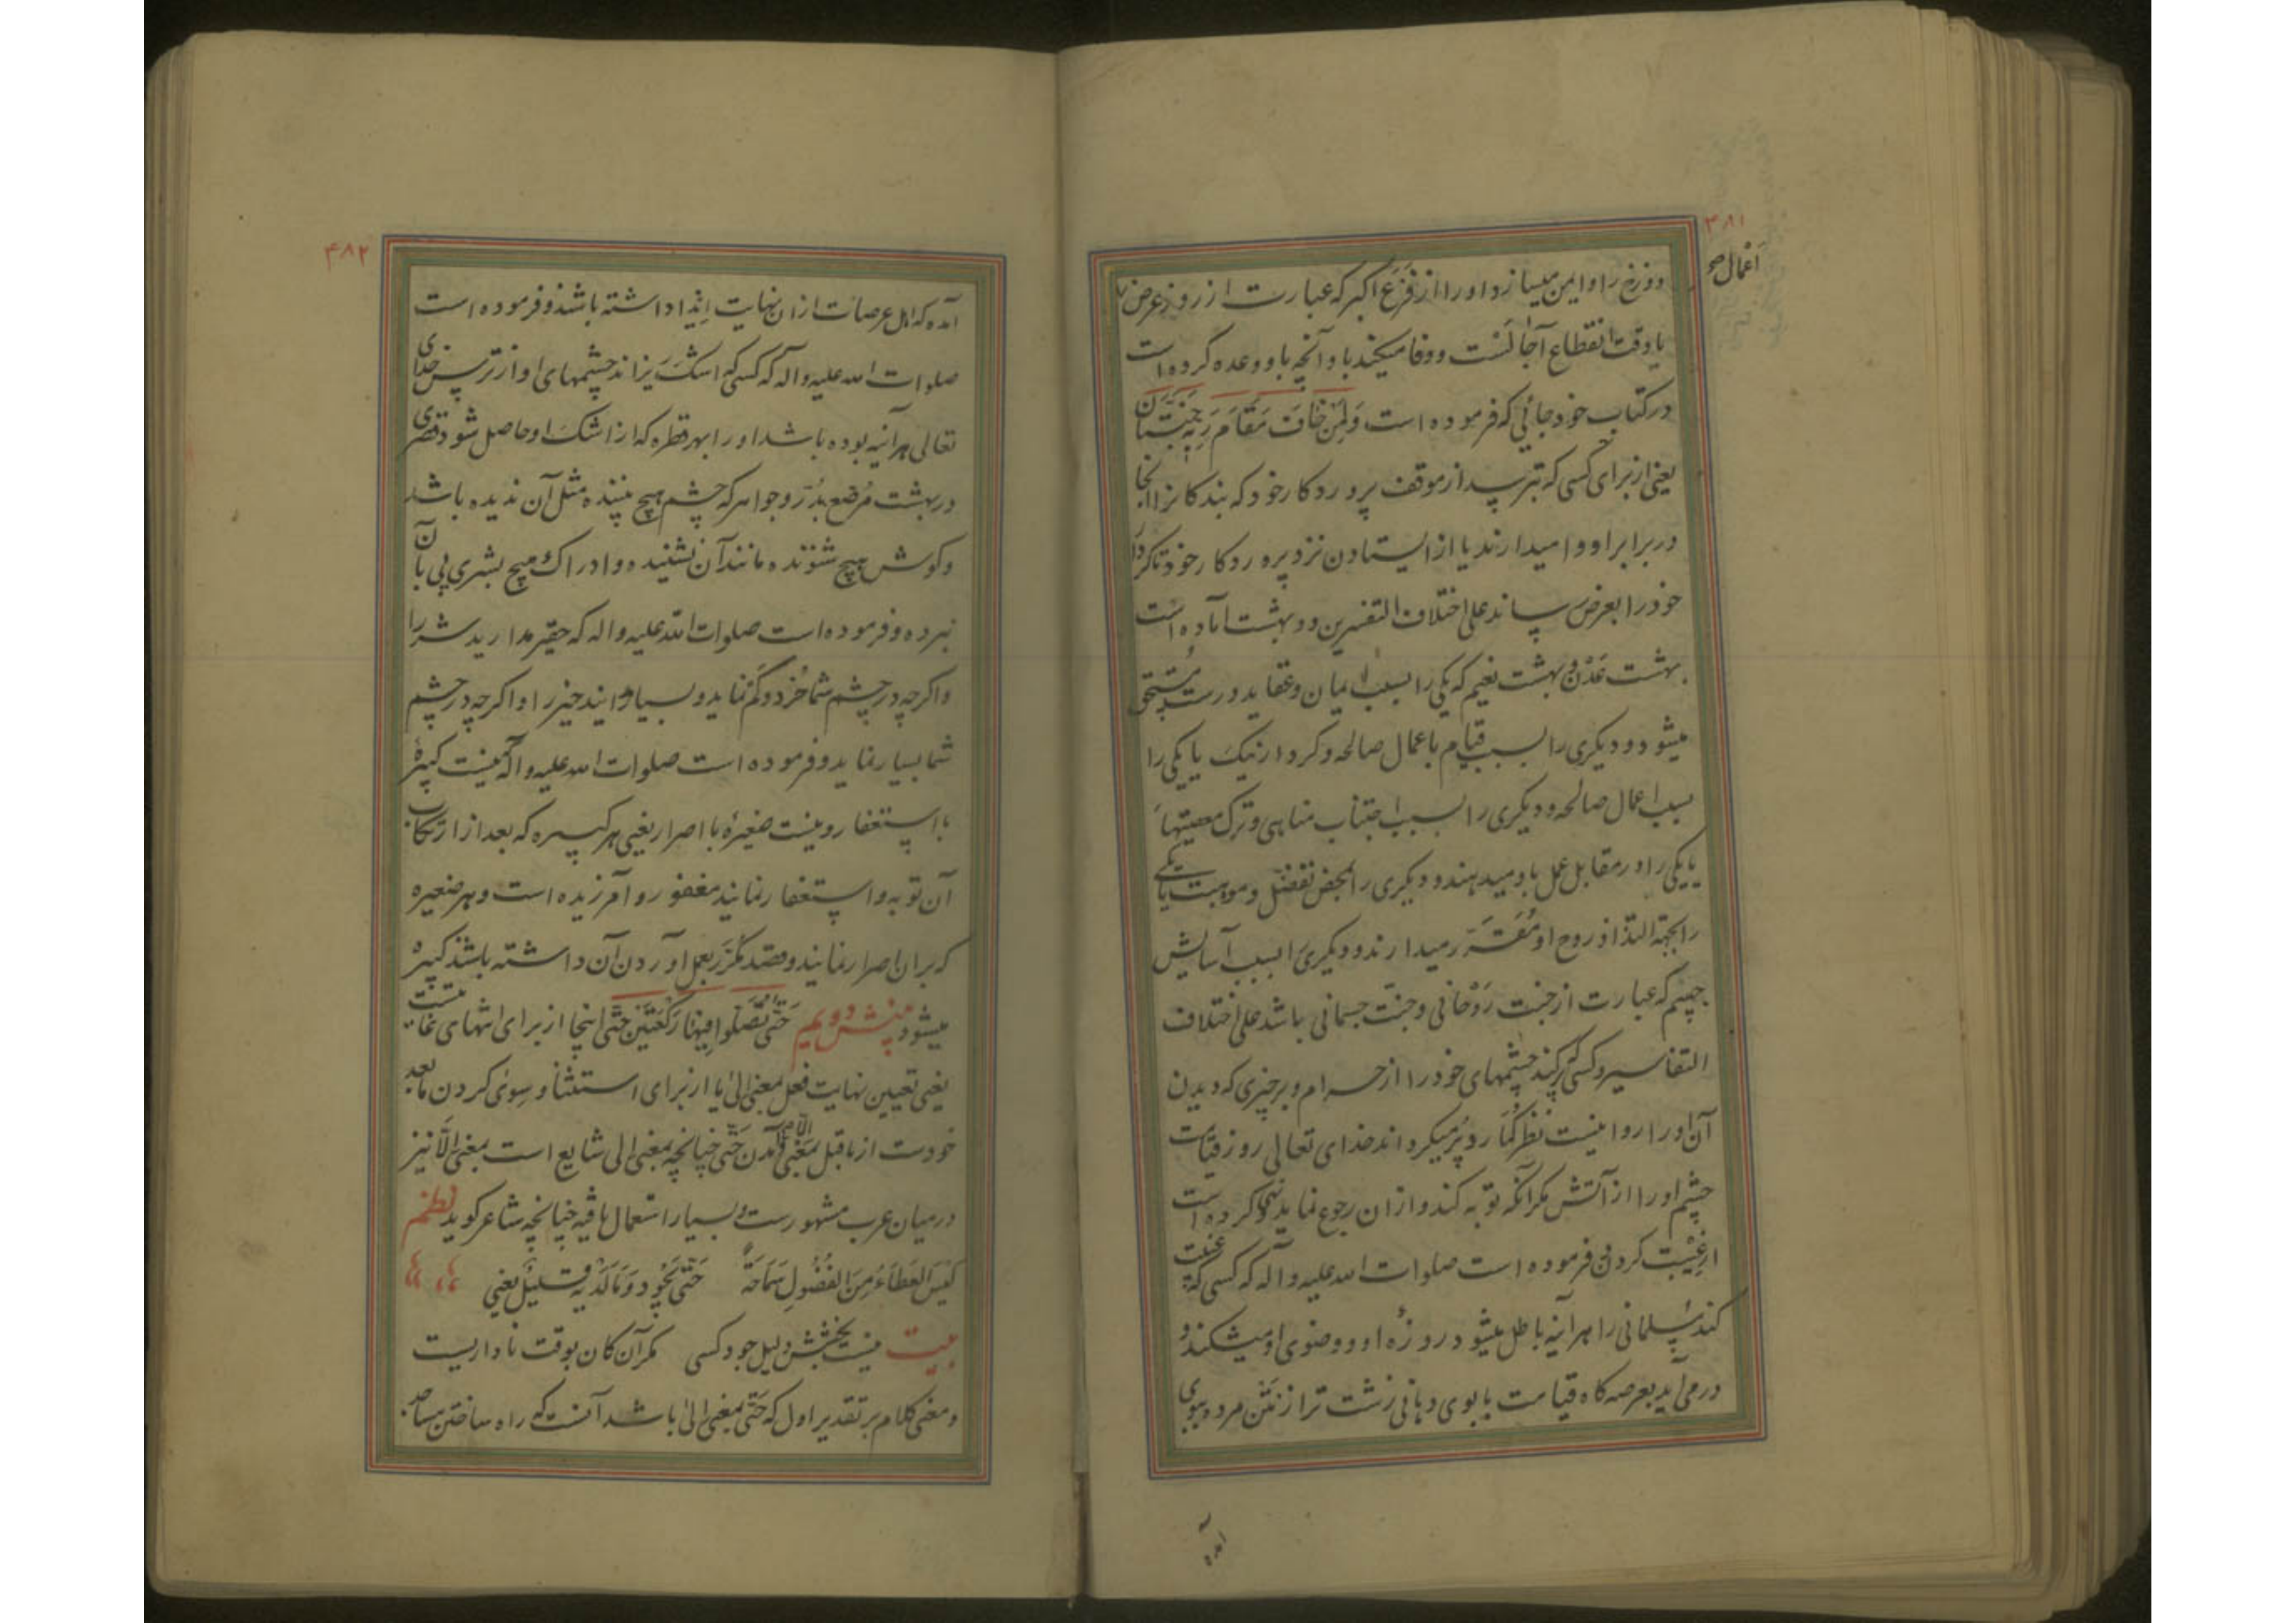 ۴۸۱
اعمال صح
دوزخ را و ایمن میسازد او را از فزع اکبر که عبارت از روز عرض
یا وقت انقطاع آجالست و وفا میکند باو آنچه باو وعده کرده است
در کتاب خود جائی که فرموده است وَلِمَنْ خَافَ مَقَامَ رَبِّهِ جَنَّتَانِ
یعنی از برای کسی که بترسد از موقف پروردکار خود که بندکانرا آنجا
در برابر او وا میدارند یا از ایستادن نزد پروردکار خود تا کردار
خود را بعرض رساند علی اختلاف التفسیرین دو بهشت آماده است
بهشت عَدْن و بهشت نعیم که یکی را بسبب ایمان و عقاید درست مستحق
میشود و دیکری را بسبب قیام باعمال صالحه و کردار نیک یا یکی را
بسبب اعمال صالحه و دیکری را بسبب اجتناب مناهی و ترک معصیتها
یا یکی را در مقابل عمل باو میدهند و دیکری را بمحض تفضّل و موهبت یا یکی
را بجهة التذاذ روح او مُقَرَّر میدارند و دیکری را بسبب آسایش
جسم که عبارت از جنت رَوْحانی و جنّت جسمانی باشد علی اختلاف
التفاسیر و کسی که پر کند چشمهای خود را از حرام و بر چیزی که دیدن
آن او را روا نیست نظر کُمارد پُر میکرداند خدای تعالی روز قیامت
چشم او را از آتش مکر آنکه توبه کند و از ان رجوع نماید و نهی کرده است
از غِیْبت کردن و فرموده است صلوات الله علیه و آله که کسی که غیبت
کند مسلمانی را هر آینه باطل میشود روزهٔ او و وضوی او میشکند و
در می آید بعرصه کاه قیامت با بوی دهانی زشت تر از نَتْن مردار و بوی
آمده
۴۸۲
آمده که اهل عرصات از ان نهایت ایذا داشته باشند و فرموده است
صلوات الله علیه و آله که کسی که اشک ریزاند چشمهای او از ترس خدای
تعالی هر آینه بوده باشد او را بهر قطره که از اشک او حاصل شود قصری
در بهشت مُرصّع بدُرّ و جواهر که چشم هیچ بیننده مثل آن ندیده باشد
و کوش هیچ شنونده مانند آن نشنیده و ادراک هیچ بشری پی بآن
نبرده و فرموده است صلوات الله علیه و اله که حقیر مدارید شر را
و اکر چه در چشم شما خُرد و کم نماید و بسیار مدانید خیر را و اکر چه در چشم
شما بسیار نماید و فرموده است صلوات الله علیه و آله که نیست کبیرهٔ
با استغفار و نیست صغیرهٔ با اصرار یعنی هر کبیره که بعد از ارتکاب
آن توبه و استغفار نمایند مغفور و آمرزیده است و هر صغیره
که بران اصرار نمایند و قصد مکرّر بعمل آوردن آن داشته باشند کبیره
میشود منهش دویم حَتّی تُصَلّوا فِیهَا رَکْعَتَیْن حَتّی اینجا از برای انتهای غایتست
یعنی تعیین نهایت فعل بمعنی الی یا از برای استثنا و سِویٰ کردن مابعد
خودست از ماقبل بمعنی الّا و آمدن حَتّی چنانچه بمعنی الی شایع است بمعنی الَّا نیز
درمیان عرب مشهورست و بسیار استعمال یافته چنانچه شاعر کوید نظم
لَیْسَ العَطَاءُ مِنَ الفُضُولِ سَمَاحَةً حَتّی تَجُودَ وَمَا لَدَیْكَ قَلیلٌ یعنی
بیت نیست بخشش دلیل جود کسی مکر آن کان بوقت ناداریست
و معنی کلام بر تقدیر اول که حَتّی بمعنی الی باشد آنست که راه ساختن مساجد